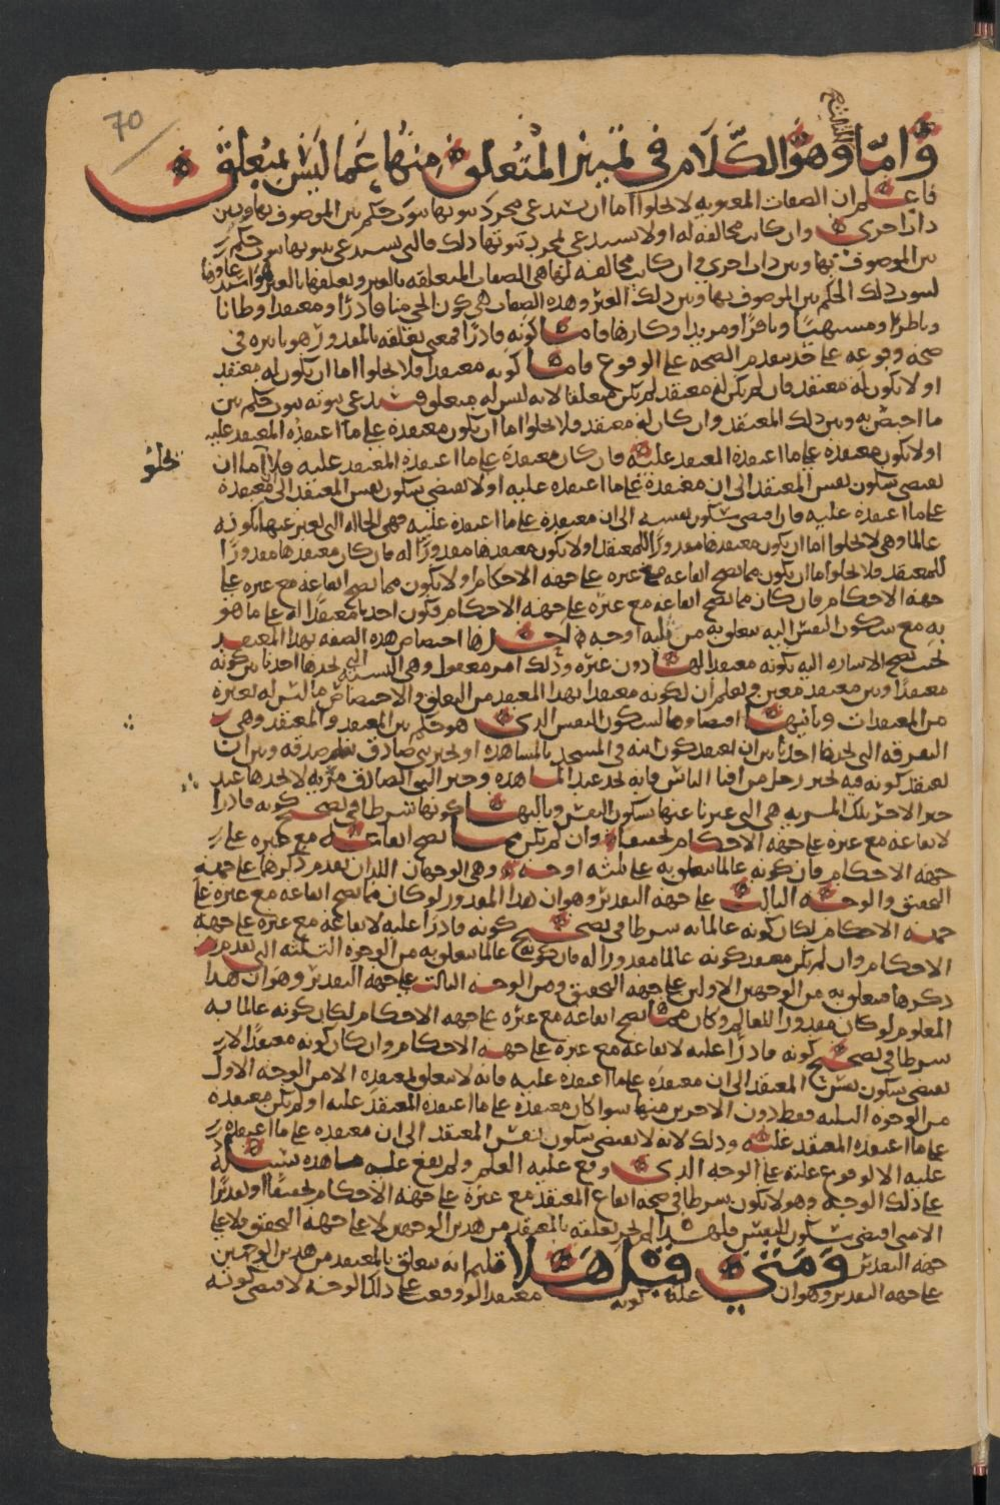 70
الثالث
وأما وهو الكلام في تمييز المتعلق منها عما ليس بمتعلق
فاعلم ان الصفات المعنوية لا تخلوا اما ان يستدعي مجرد ثبوتها ثبوت حكم بين الموصوف بها وبين
ذات اخرى وان كانت مخالفة له او لا يستدعي لمجرد ثبوتها ذلك فالتي يستدعي ثبوتها ثبوت حكم
بين الموصوف بها وبين ذات اخرى وان كانت مخالفة لها هي الصفات المتعلقة بالغير وتعلقها بالغير هو
ثبوت ذلك الحكم بين الموصوف بها وبين ذلك الغير وهذه الصفات هي كون الحي منا قادرا ومعتقدا وظانا
وناظرا ومشتهيا ونافرا ومريدا وكارها فاما كونه قادرا فمعنى تعلقه بالمقدور هو تاثيره في
صحة وقوعه على حد يتقدم الصحة على الوقوع فاما كونه معتقدا فلا يخلوا اما ان يكون له معتقد
او لا يكون له معتقد فان لم يكن له معتقد لم يكن متعلقا لانه ليس له متعلق يستدعي ثبوته ثبوت حكم بين
ما اختص به وبين ذلك المعتقد وان كان له معتقد فلا يخلوا اما ان يكون معتقده على ما اعتقده المعتقد عليه
او لا يكون معتقده على ما اعتقده المعتقد عليه فان كان معتقده على ما اعتقده المعتقد عليه فلا اما ان
يخلو
يقتضي سكون نفس المعتقد الى ان معتقده على ما اعتقده عليه او لا يقتضي سكون نفس المعتقد الى معتقده
على ما اعتقده عليه فان اقتضى سكون نفسه الى ان معتقده على ما اعتقده عليه فهي الحالة التي نعبر عنها بكونه
عالما وهي لا تخلوا اما ان يكون معتقدها مقدورا للمعتقد او لا يكون معتقدها مقدورا له فان كان معتقدها مقدورا
للمعتقد فلا يخلوا اما ان يكون مما يصح ايقاعه مع غيره على جهة الاحكام او لا يكون مما يصح ايقاعه مع غيره على
جهة الاحكام فان كان مما يصح ايقاعه مع غيره على جهة الاحكام فكون احدنا معتقدا له على ما هو
به مع سكون النفس اليه يتعلق به من ثلثة اوجه احدها اختصاص هذه الصفة بهذا المعتقد
بحيث يصح الاشارة اليه بكونه معتقدا لها دون غيره وذلك امر معقول وهي النسبة التي يجدها احدنا بين كونه
معتقدا وبين معتقد معين ونعلم ان لكونه معتقدا بهذا المعتقد من التعلق والاختصاص ما ليس له بغيره
من المعتقدات وثانيها اقتضاوها لسكون النفس الذي هو حكم بين المعتقد والمعتقد وهي
التفرقة التي يجدها احدنا بين ان يعتقد كون ابنه في المسجد بالمشاهدة او بخبر نبي صادق صدقه وبين ان
يعتقد كونه فيه بخبر رجل من افنا الناس فانه يجد عند المشاهدة وخبر النبي الصادق مزية لا يجدها عند
خبر الاخر تلك المزية هي التي عبرنا عنها بسكون النفس وثالثها كونها شرطا في تصحيح كونه قادرا
لايقاعه مع غيره على جهة الاحكام تحقيقا وان لم يكن مما يصح ايقاعه مع غيره على
جهة الاحكام فان كونه عالما يتعلق به على ثلثة اوجه وهي الوجهان اللذان تقدم ذكرهما على جهة
التحقيق والوجه الثالث على جهة التقدير وهو ان هذا المقدور لو كان مما يصح ايقاعه مع غيره على
جهة الاحكام لكان كونه عالما به شرطا في تصحيح كونه قادرا عليه لايقاعه مع غيره على جهة
الاحكام وان لم يكن معتقد كونه عالما مقدورا له فان كونه عالما يتعلق به من الوجوه الثلثة التي تقدم
ذكرها فيتعلق به من الوجهين الاولين على جهة التحقيق ومن الوجه الثالث على جهة التقدير وهو ان هذا
المعلوم لو كان مقدورا للعالم وكان مما يصح ايقاعه مع غيره على جهة الاحكام لكان كونه عالما به
شرطا في تصحيح كونه قادرا عليه لايقاعه مع غيره على جهة الاحكام وان كان كونه معتقدا لا
يقتضي سكون نفس المعتقد الى ان معتقده على ما اعتقده عليه فانه لا يتعلق بمعتقده الا من الوجه الاول
من الوجوه الثلثة فقط دون الاخرين منها سوا كان معتقده على ما اعتقده المعتقد عليه او لم يكن معتقده
على ما اعتقده المعتقد عليه وذلك لانه لا يقتضي سكون نفس المعتقد الى ان معتقده على ما اعتقده
عليه الا لوقوع علته على الوجه الذي وقع عليه العلم ولم يقع عليه ما هذه سبيله
على ذلك الوجه وهو لا يكون شرطا في صحة ايقاع المعتقد مع غيره على جهة الاحكام تحقيقا او تقديرا
الا متى اقتضى سكون النفس فلهذا لم يجز تعلقه بالمعتقد من هذين الوجهين لا على جهة التحقيق ولا على
جهة التقدير ومتى قيل هلا قلتم انه يتعلق بالمعتقد من هذين الوجهين
على جهة التقدير وهو ان علة كونه معتقدا لو وقعت على ذلك الوجه لاقتضى كونه